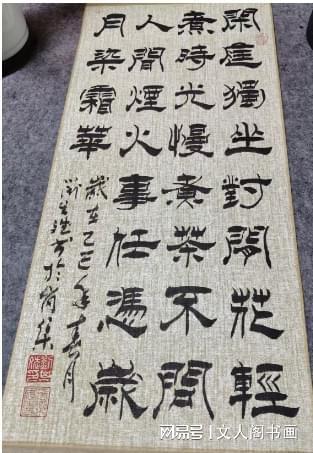 閑庭獨坐對閑花輕
煮時光慢煮茶不問
人間煙火事任憑歲
月染霜華
歲在乙巳年春月
网易号 | 文人阁书画